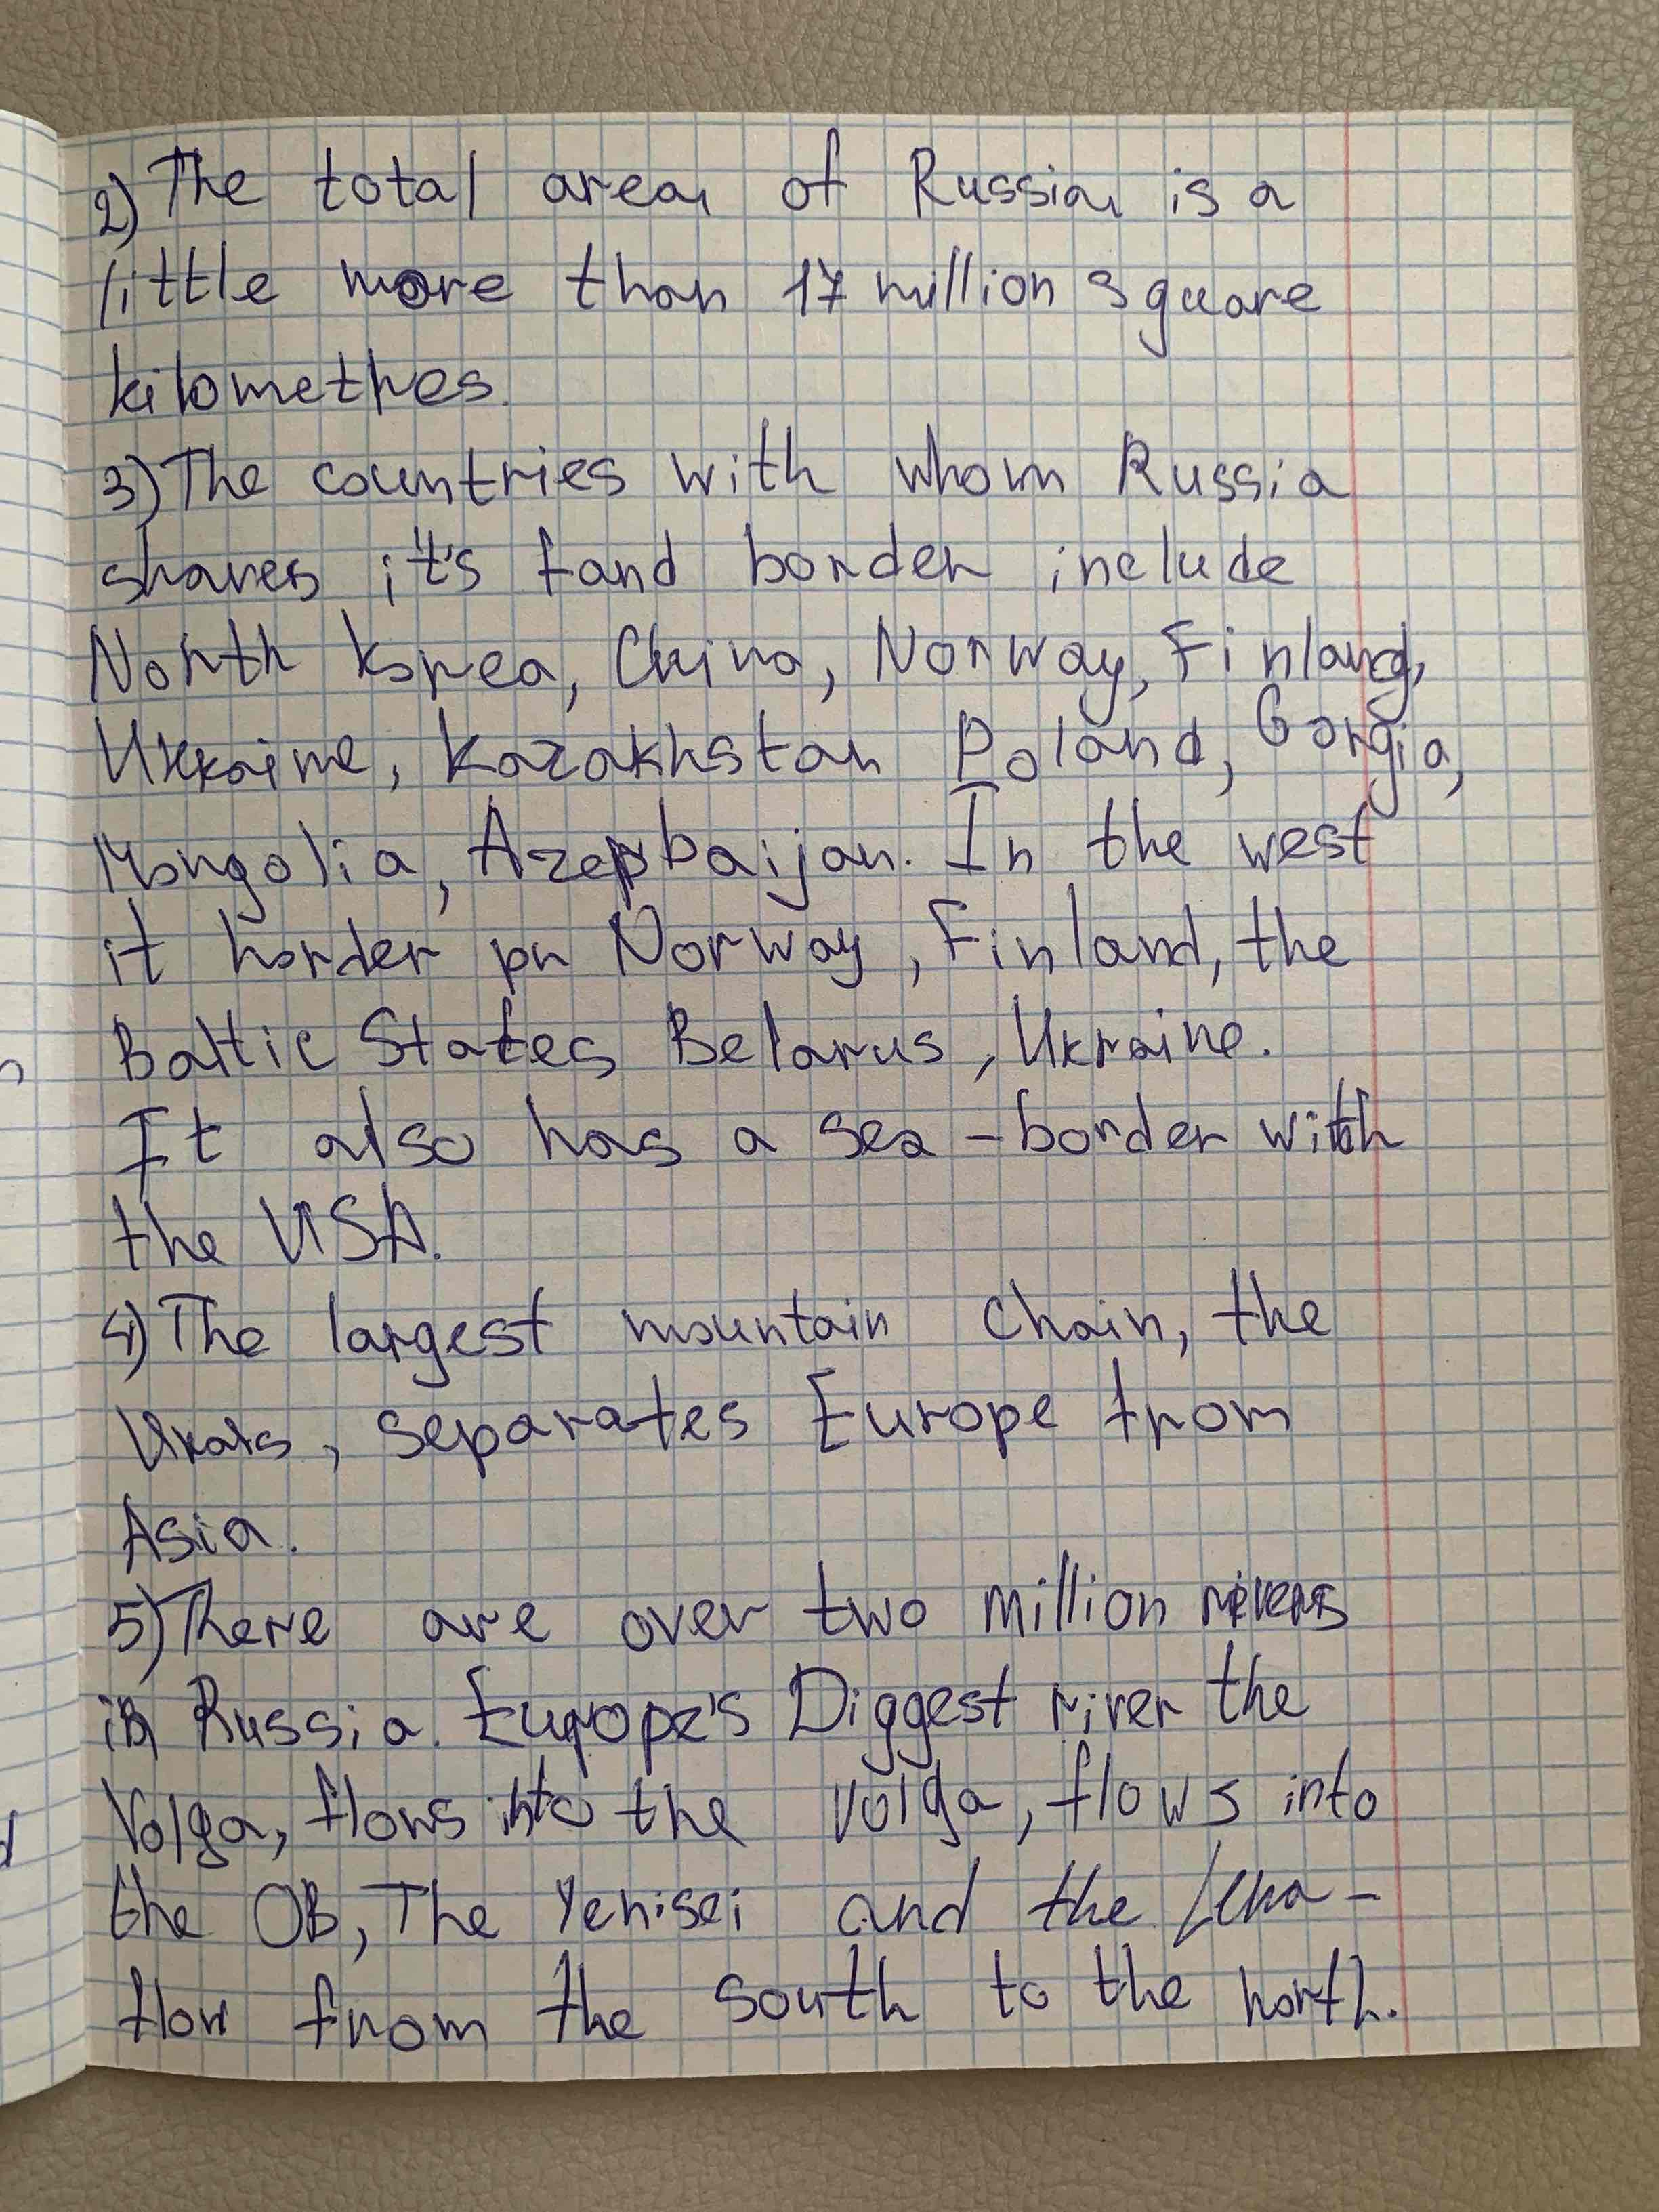 2) The total area of Russia is a
little more than 17 million square
kilomethes.
3) The countries with whom Russia
shares it's fand border include
North Korea, China, Norway, Finland,
Ukraine, Kazakhstan Poland, Gorgia,
Mongolia, Azerbaijan. In the west
it horder on Norway, Finland, the
Baltic States Belarus, Ukraine.
It also has a sea-border with
the USA.
4) The largest mountain chain, the
Urals, separates Europe from
Asia.
5) There are over two million rivers
in Russia. Europe's Diggest river the
Volga, flows into the Volga, flows into
the OB, The Yenisei and the Lena-
flow from the south to the north.